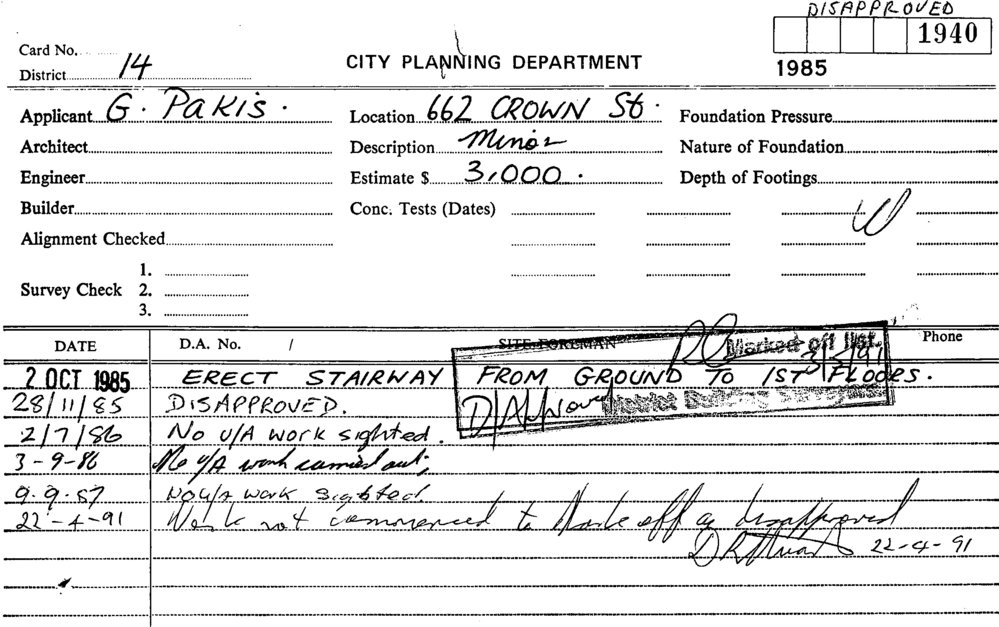 DISAPPROVED
1940
1985
Card No.
District 14
CITY PLANNING DEPARTMENT
Applicant G. PAKIS.
Location 662 CROWN St.
Foundation Pressure
Architect
Description Minor
Nature of Foundation
Engineer
Estimate $ 3,000.
Depth of Footings
Builder
Conc. Tests (Dates)
Alignment Checked
Survey Check
1.
2.
3.
DATE D.A. No. / SITE FOREMAN Phone
Marked off list.
2 OCT 1985 ERECT STAIRWAY FROM GROUND TO 1ST FLOORS.
28/11/85 DISAPPROVED.
District Building Surveyor
2/7/86 No U/A work sighted.
3-9-86 No U/A work carried out;
9.9.87 No U/A work sighted
22-4-91 Work not commenced to Mark off as disapproved
22-4-91